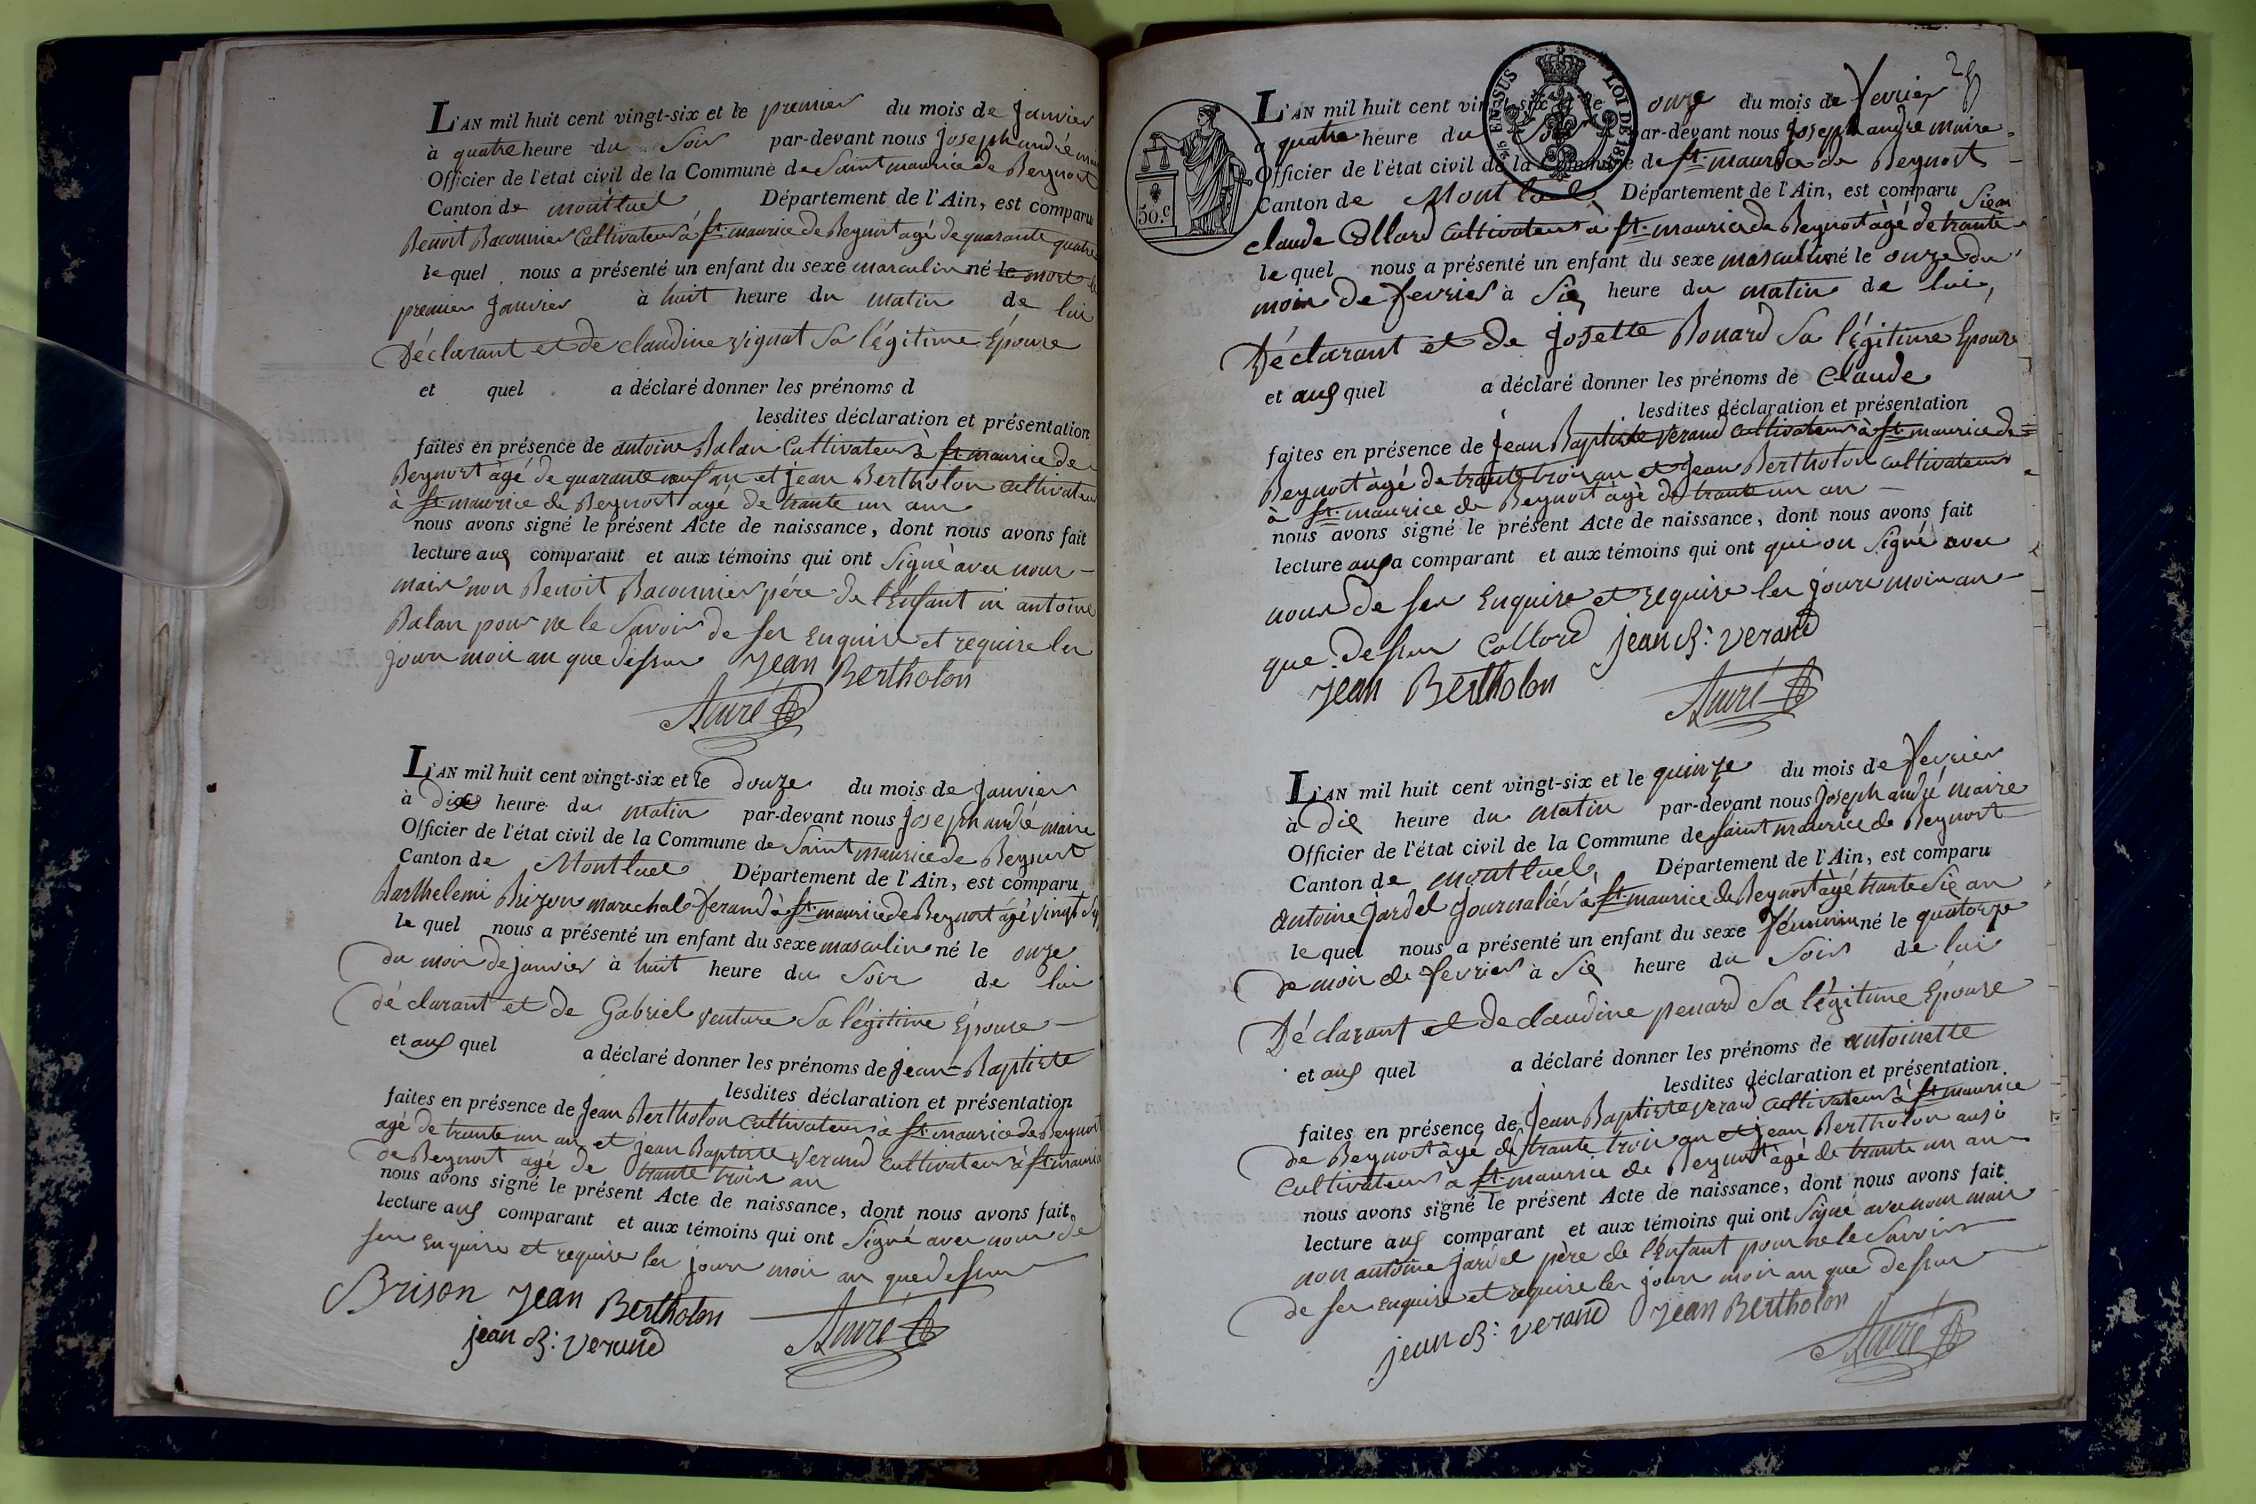 L'AN mil huit cent vingt-six et le premier du mois de janvier
à quatre heure du Soir par-devant nous Joseph andré
Officier de l'état civil de la Commune de Saint maurice de Beynost
Canton de montluel Département de l'Ain, est comparu
Benoit Baconnier Cultivateur à St. maurice de Beynost agé de quarante quatre
le quel nous a présenté un enfant du sexe masculin né le mort le
premier Janvier à huit heure du matin de lui
Déclarant et de claudine vignat Sa légitime Épouse
et quel a déclaré donner les prénoms d
lesdites déclaration et présentation
faites en présence de antoine Balan Cultivateur à St. maurice de
Beynost àgé de quarante neuf an et jean Bertholon cultivateur
à St. maurice de Beynost agé de trante un ans
nous avons signé le présent Acte de naissance, dont nous avons fait
lecture aus comparant et aux témoins qui ont Signé avec nous
mais non Benoit Baconnier père de l'Enfant ni antoine
Balan pour ne le Savoir de ser Enquire et require les
jour mois an que dessus Jean Bertholon
André
L'AN mil huit cent vingt-six et le douze du mois de janvier
à dix heure du matin par-devant nous joseph andré maire
Officier de l'état civil de la Commune de Saint maurice de Beynost
Canton de Montluel Département de l'Ain, est comparu
Barthelemi Brizon marechal ferand à St. maurice de Beynost àgé vingt
le quel nous a présenté un enfant du sexe masculin né le onze
du mois de janvier à huit heure du Soir de lui
déclarant et de Gabriel venture Sa légitime Épouse
et aus quel a déclaré donner les prénoms de jean-Baptiste
lesdites déclaration et présentation
faites en présence de Jean Bertholon Cultivateur à St. maurice de Beynost
agé de trante un an et jean Baptiste verand Cultivateur à St. maurice
de Beynost agé de trante trois an
nous avons signé le présent Acte de naissance, dont nous avons fait
lecture aus comparant et aux témoins qui ont Signé avec nous de
ser enquire et require les jour mois an que dessus
Brison Jean Bertholon
jean B: verand André
25
EN SUS LOI DE
50.c
L'AN mil huit cent vingt-six et le onze du mois de fevrier
a quatre heure du Soir par-devant nous joseph andré maire
Officier de l'état civil de la Commune de St. maurice de Beynost
Canton de Montluel Département de l'Ain, est comparu
claude Collard Cultivateur à St. maurice de Beynost àgé de trante
le quel nous a présenté un enfant du sexe masculin né le onze du
mois de fevrier à Six heure du matin de lui,
Déclarant et de josette Bonard Sa légitime Épouse
et aus quel a déclaré donner les prénoms de Claude
lesdites déclaration et présentation
faites en présence de Jean Baptiste verand Cultivateur à St. maurice de
Beynost àgé de trante trois an et Jean Bertholon cultivateur
à St. maurice de Beynost agé de trante un an
nous avons signé le présent Acte de naissance, dont nous avons fait
lecture aus a comparant et aux témoins qui ont qui on Signé avec
nous de ser Enquire et require les jours mois an
que dessus Collard jean B: verand
Jean Bertholon
André
L'AN mil huit cent vingt-six et le quinze du mois de fevrier
à dix heure du matin par-devant nous Joseph andré maire
Officier de l'état civil de la Commune de saint maurice de Beynost
Canton de montluel, Département de l'Ain, est comparu
antoine jardel journalier à St. maurice de Beynost àgé trante Six an
le quel nous a présenté un enfant du sexe féminin né le quatorze
de mois de fevrier à Six heure du Soir de lui
Déclarant et de claudine penard Sa légitime Épouse
et aus quel a déclaré donner les prénoms de antoinette
lesdites déclaration et présentation
faites en présence de Jean Baptiste verand Cultivateur à St. maurice
de Beynost àgé de trante trois an et jean Bertholon ausi
Cultivateur à St. maurice de Beynost àgé de trante un an
nous avons signé le présent Acte de naissance, dont nous avons fait
lecture aus comparant et aux témoins qui ont Signé avec nous mais
non antoine jardel père de l'Enfant pour ne le Savoir
de ser enquire et require les jours mois an que dessus
jean B: verand Jean Bertholon
André